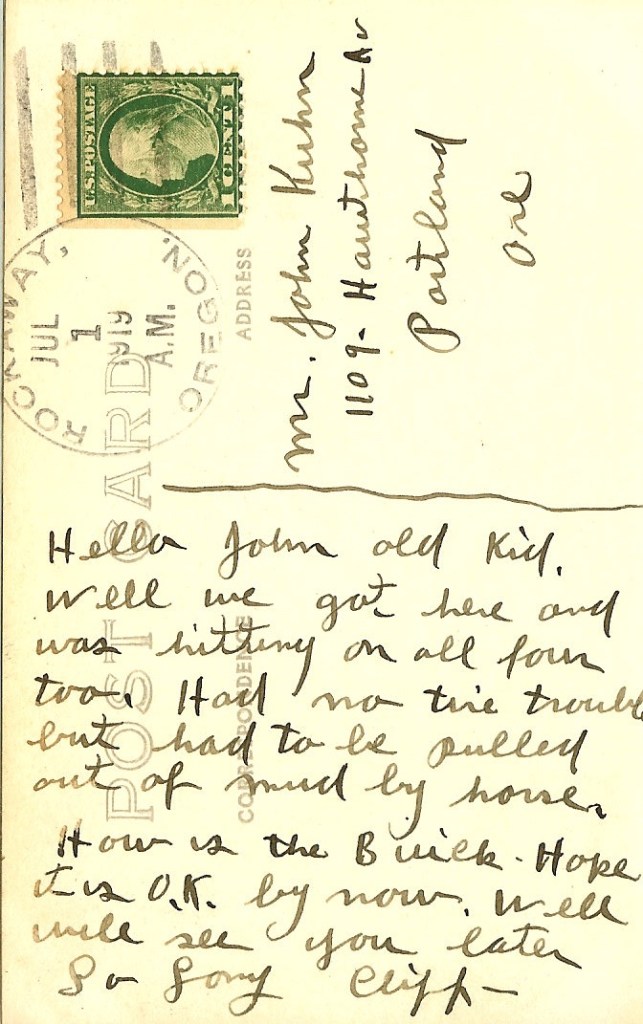 U.S. POSTAGE
1 CENT 1
ROCKAWAY, OREGON.
JUL
1
1919
A.M.
POST CARD
ADDRESS
Mr. John Kuhn
1109 - Hawthorne Av
Portland
Ore
CORRESPONDENCE
Hello John old Kid.
Well we got here and
was hitting on all four
too. Had no tire trouble
but had to be pulled
out of mud by horse.
How is the Buick. Hope
it is O.K. by now. Well
will see you later
So Long Cliff -